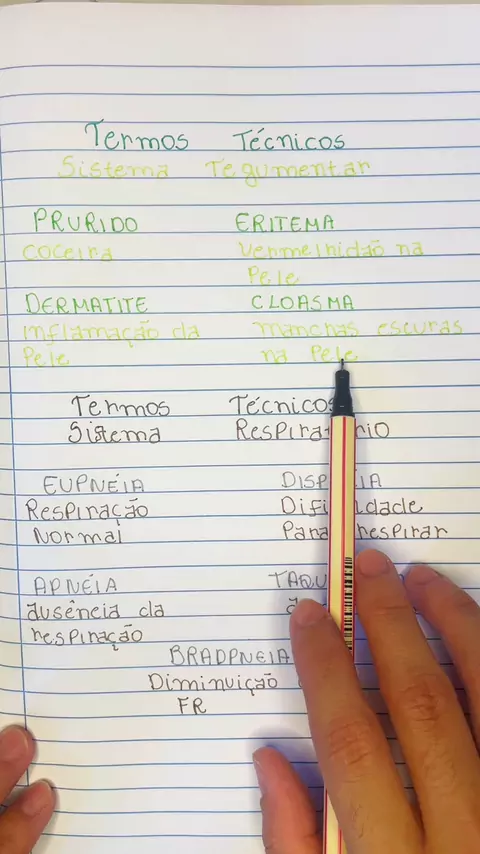 Termos Técnicos
Sistema Tegumentar
PRURIDO
coceira
ERITEMA
vermelhidão na
Pele
DERMATITE
inflamação da
Pele
CLOASMA
manchas escuras
na Pele
Termos Técnicos
Sistema
EUPNÉIA
Respiração
Normal
Para respirar
APNÉIA
ausência da
respiração
BRADPNEIA
Diminuição
FR